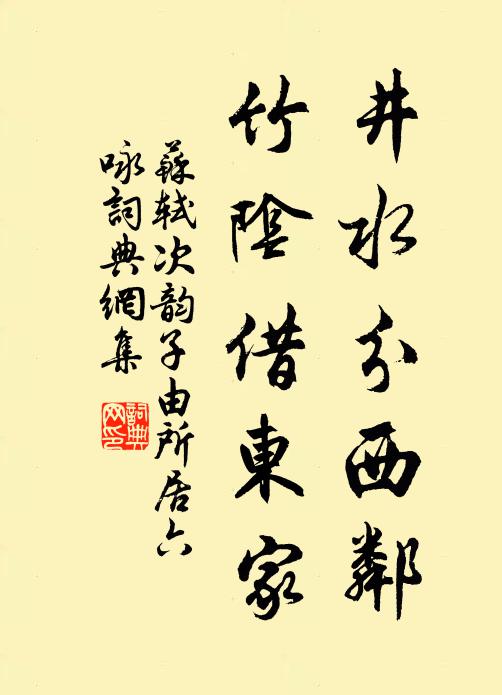 井水分西鄰
竹陰借東家
蘇軾次韵子由所居六
咏詞典網集
詞典
网印